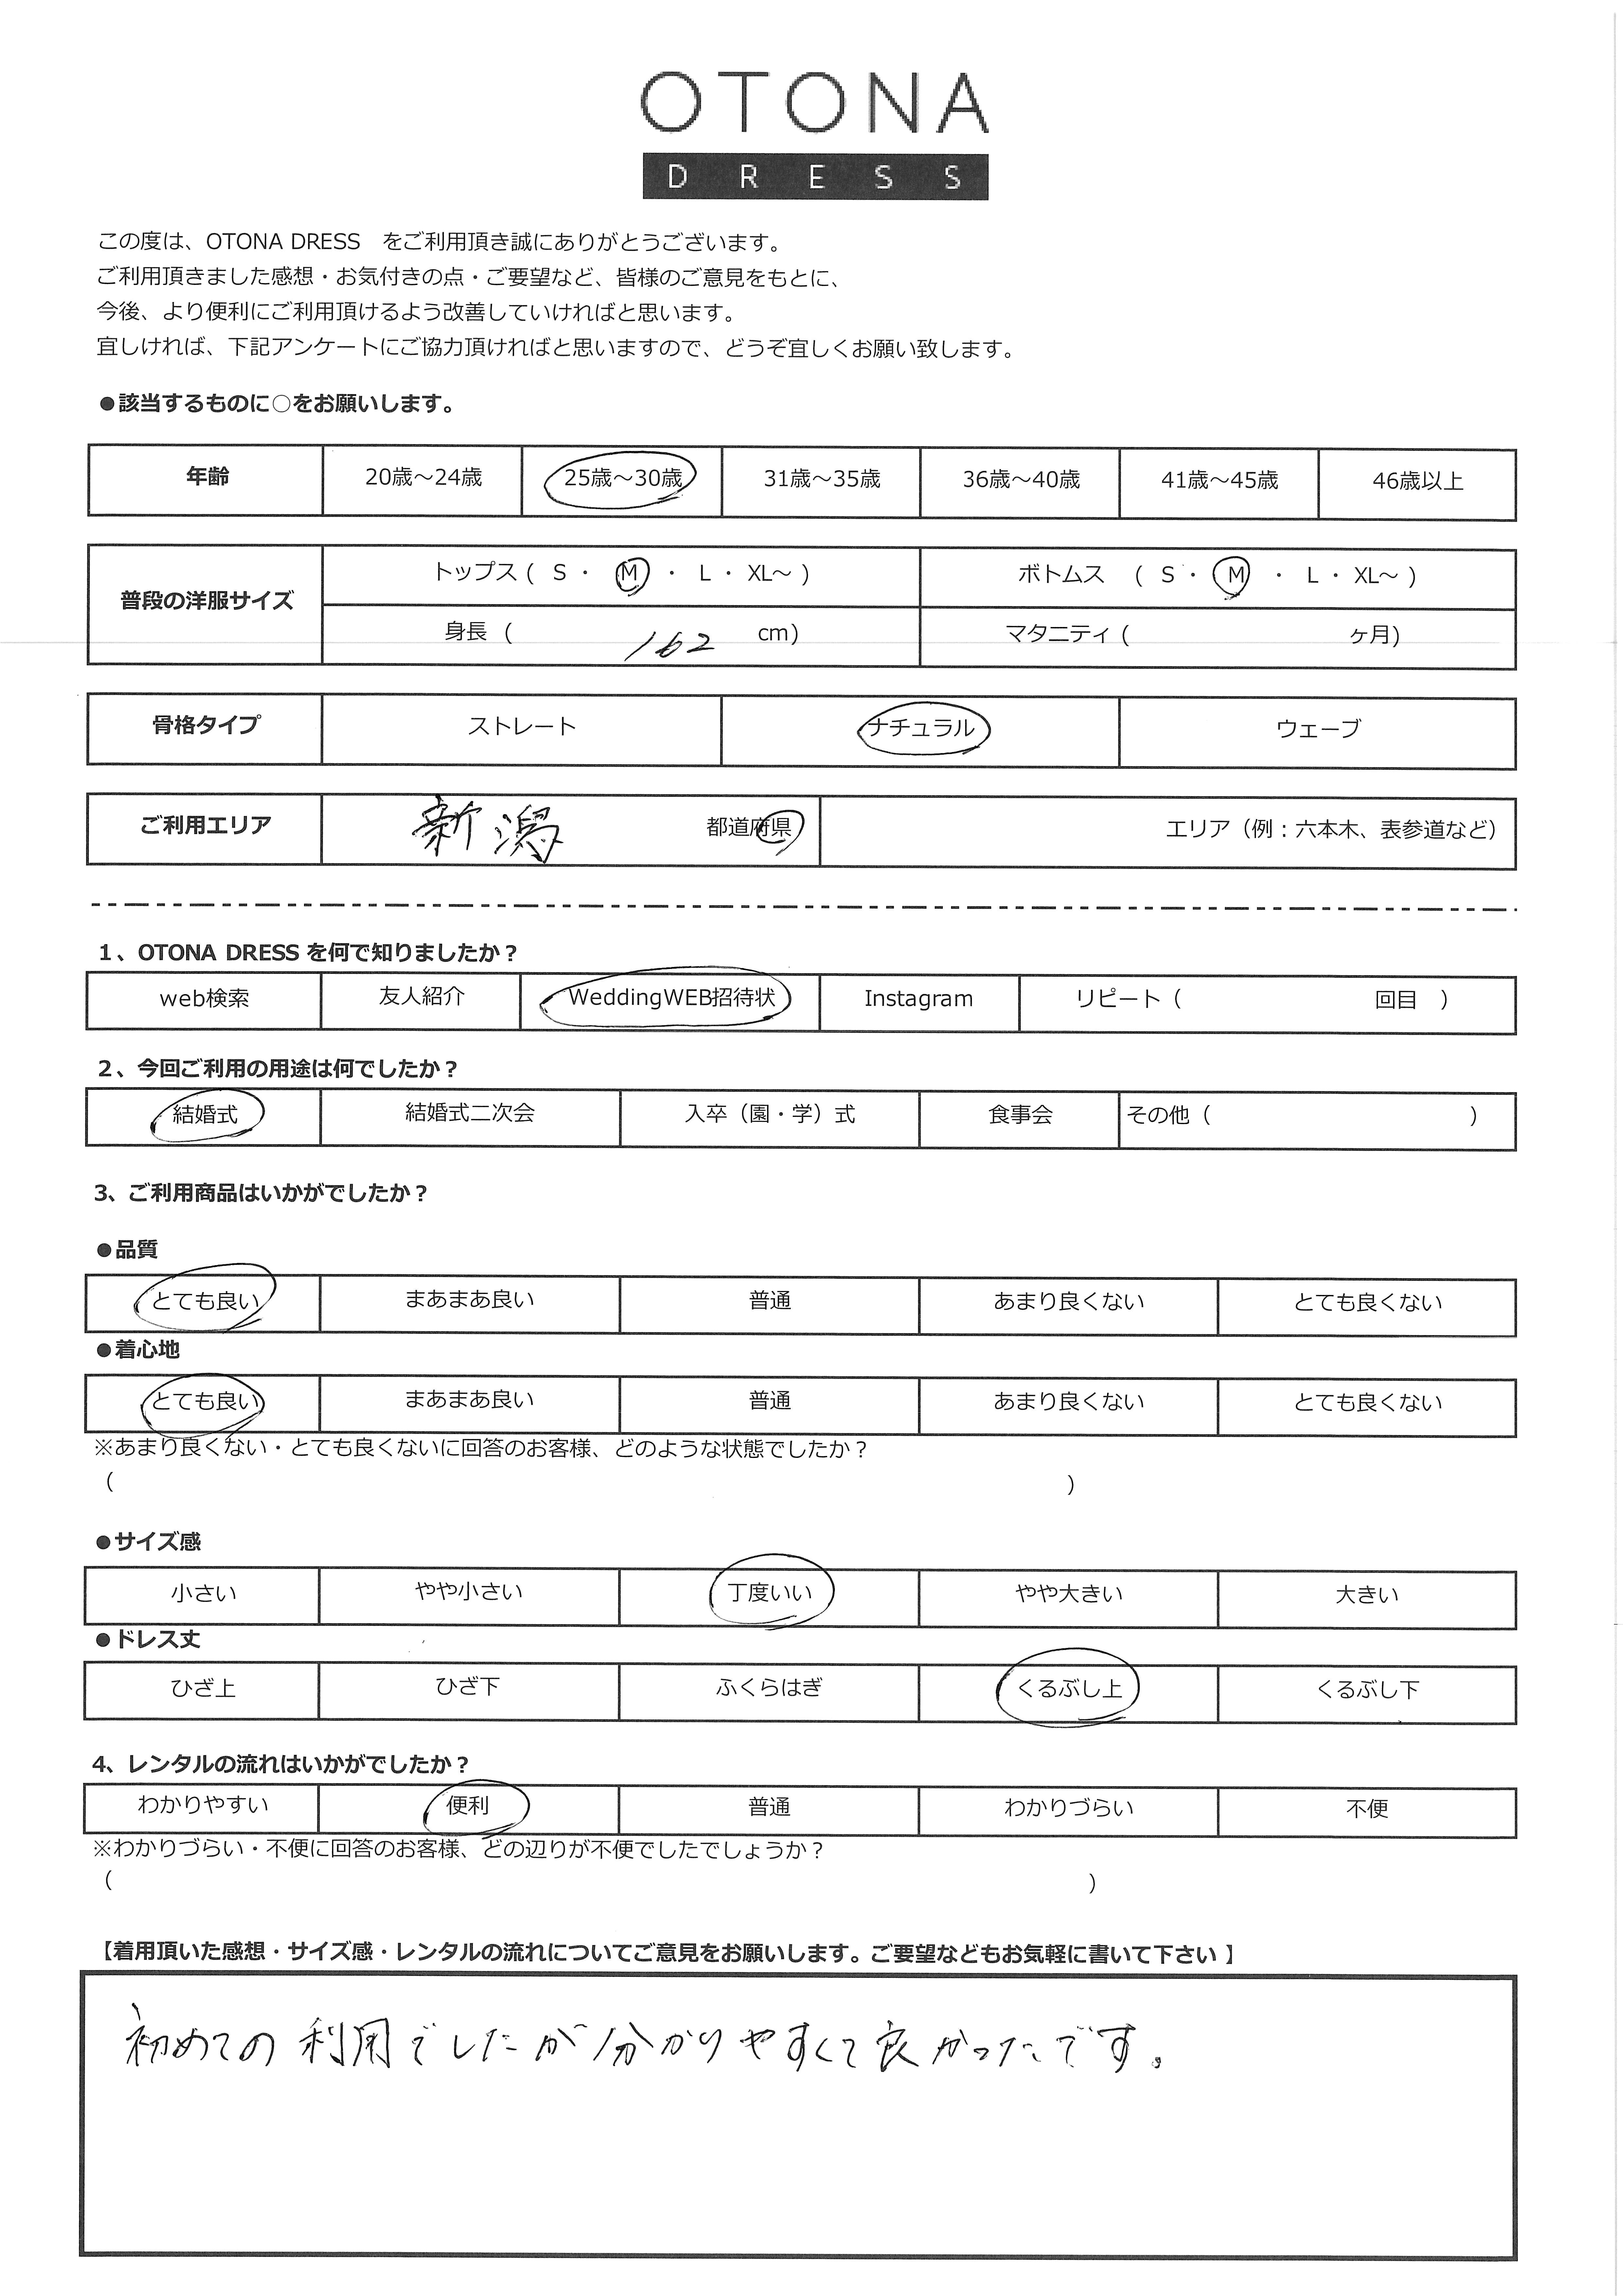 OTONA
DRESS
この度は、OTONA DRESS をご利用頂き誠にありがとうございます。
ご利用頂きました感想・お気付きの点・ご要望など、皆様のご意見をもとに、
今後、より便利にご利用頂けるよう改善していければと思います。
宜しければ、下記アンケートにご協力頂ければと思いますので、どうぞ宜しくお願い致します。
●該当するものに○をお願いします。
年齢 20歳～24歳 25歳～30歳 31歳～35歳 36歳～40歳 41歳～45歳 46歳以上
普段の洋服サイズ トップス ( S ・ M ・ L ・ XL～ ) ボトムス ( S ・ M ・ L ・ XL～ )
身長 ( 162 cm) マタニティ ( ヶ月)
骨格タイプ ストレート ナチュラル ウェーブ
ご利用エリア 新潟 都道府県 エリア（例：六本木、表参道など）
1、OTONA DRESS を何で知りましたか？
web検索 友人紹介 WeddingWEB招待状 Instagram リピート（ 回目 ）
2、今回ご利用の用途は何でしたか？
結婚式 結婚式二次会 入卒（園・学）式 食事会 その他（ ）
3、ご利用商品はいかがでしたか？
●品質
とても良い まあまあ良い 普通 あまり良くない とても良くない
●着心地
とても良い まあまあ良い 普通 あまり良くない とても良くない
※あまり良くない・とても良くないに回答のお客様、どのような状態でしたか？
（ ）
●サイズ感
小さい やや小さい 丁度いい やや大きい 大きい
●ドレス丈
ひざ上 ひざ下 ふくらはぎ くるぶし上 くるぶし下
4、レンタルの流れはいかがでしたか？
わかりやすい 便利 普通 わかりづらい 不便
※わかりづらい・不便に回答のお客様、どの辺りが不便でしたでしょうか？
（ ）
【着用頂いた感想・サイズ感・レンタルの流れについてご意見をお願いします。ご要望などもお気軽に書いて下さい 】
初めての利用でしたが分かりやすくて良かったです。